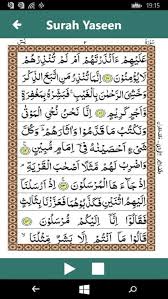 19:15
Surah Yaseen
عَلَيْهِمْ ءَاَنْذَرْتَهُمْ اَمْ لَمْ تُنْذِرْهُمْ
لَا يُؤْمِنُوْنَ اِنَّمَا تُنْذِرُ مَنِ اتَّبَعَ الذِّكْرَ
وَخَشِيَ الرَّحْمٰنَ بِالْغَيْبِ ۚ فَبَشِّرْهُ بِمَغْفِرَةٍ
وَّاَجْرٍ كَرِيْمٍ اِنَّا نَحْنُ نُحْيِ الْمَوْتٰى
وَنَكْتُبُ مَا قَدَّمُوْا وَاٰثَارَهُمْ وَكُلَّ شَيْءٍ
اَحْصَيْنٰهُ فِيْٓ اِمَامٍ مُّبِيْنٍ
وَاضْرِبْ لَهُمْ مَّثَلًا اَصْحٰبَ الْقَرْيَةِ
اِذْ جَآءَهَا الْمُرْسَلُوْنَ اِذْ اَرْسَلْنَآ
اِلَيْهِمُ اثْنَيْنِ فَكَذَّبُوْهُمَا فَعَزَّزْنَا بِثَالِثٍ
فَقَالُوْٓا اِنَّآ اِلَيْكُمْ مُّرْسَلُوْنَ
قَالُوْا مَآ اَنْتُمْ اِلَّا بَشَرٌ مِّثْلُنَا